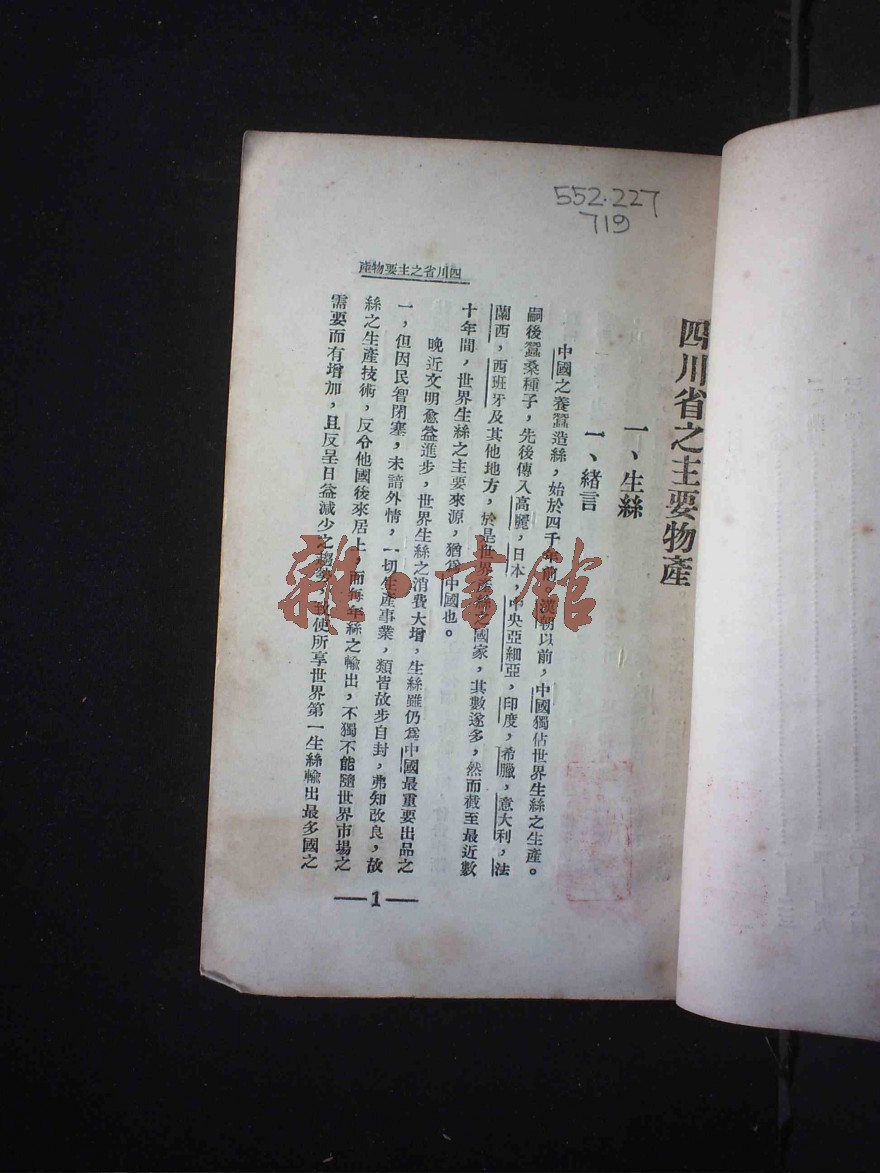 552.227
719
四川省之主要物產
四川省之主要物產
一、生絲
一、緒言
中國之養蠶造絲，始於四千年前，漢朝以前，中國獨佔世界生絲之生產。
嗣後蠶桑種子，先後傳入高麗，日本，中央亞細亞，印度，希臘，意大利，法
蘭西，西班牙及其他地方，於是世界產絲之國家，其數遂多，然而截至最近數
十年間，世界生絲之主要來源，猶爲中國也。
晚近文明愈益進步，世界生絲之消費大增，生絲雖仍爲中國最重要出品之
一，但因民智閉塞，未諳外情，一切生產事業，類皆故步自封，弗知改良，故
絲之生產技術，反令他國後來居上，而每年絲之輸出，不獨不能隨世界市場之
需要而有增加，且反呈日益減少之趨勢，致使所享世界第一生絲輸出最多國之
—1—
雜·書館